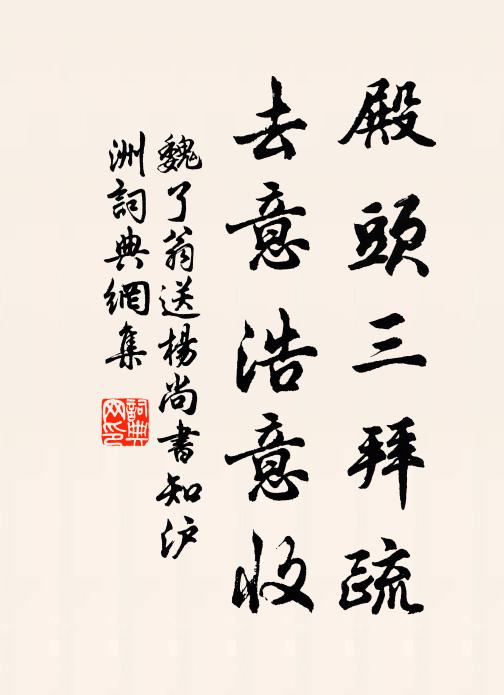 殿頭三拜疏
去意浩意收
魏了翁送楊尚書知沪
洲詞典網集
詞典网印